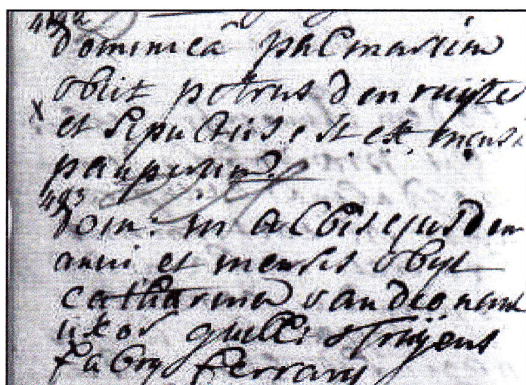 dominicâ palmarum
obiit petrus den ruyte
x et sepultus est ex mensa
pauperum
493
dom. in albis ejusdem
anni et mensis obyt
catharina van
uxor guilli struyens
fabry ferrary